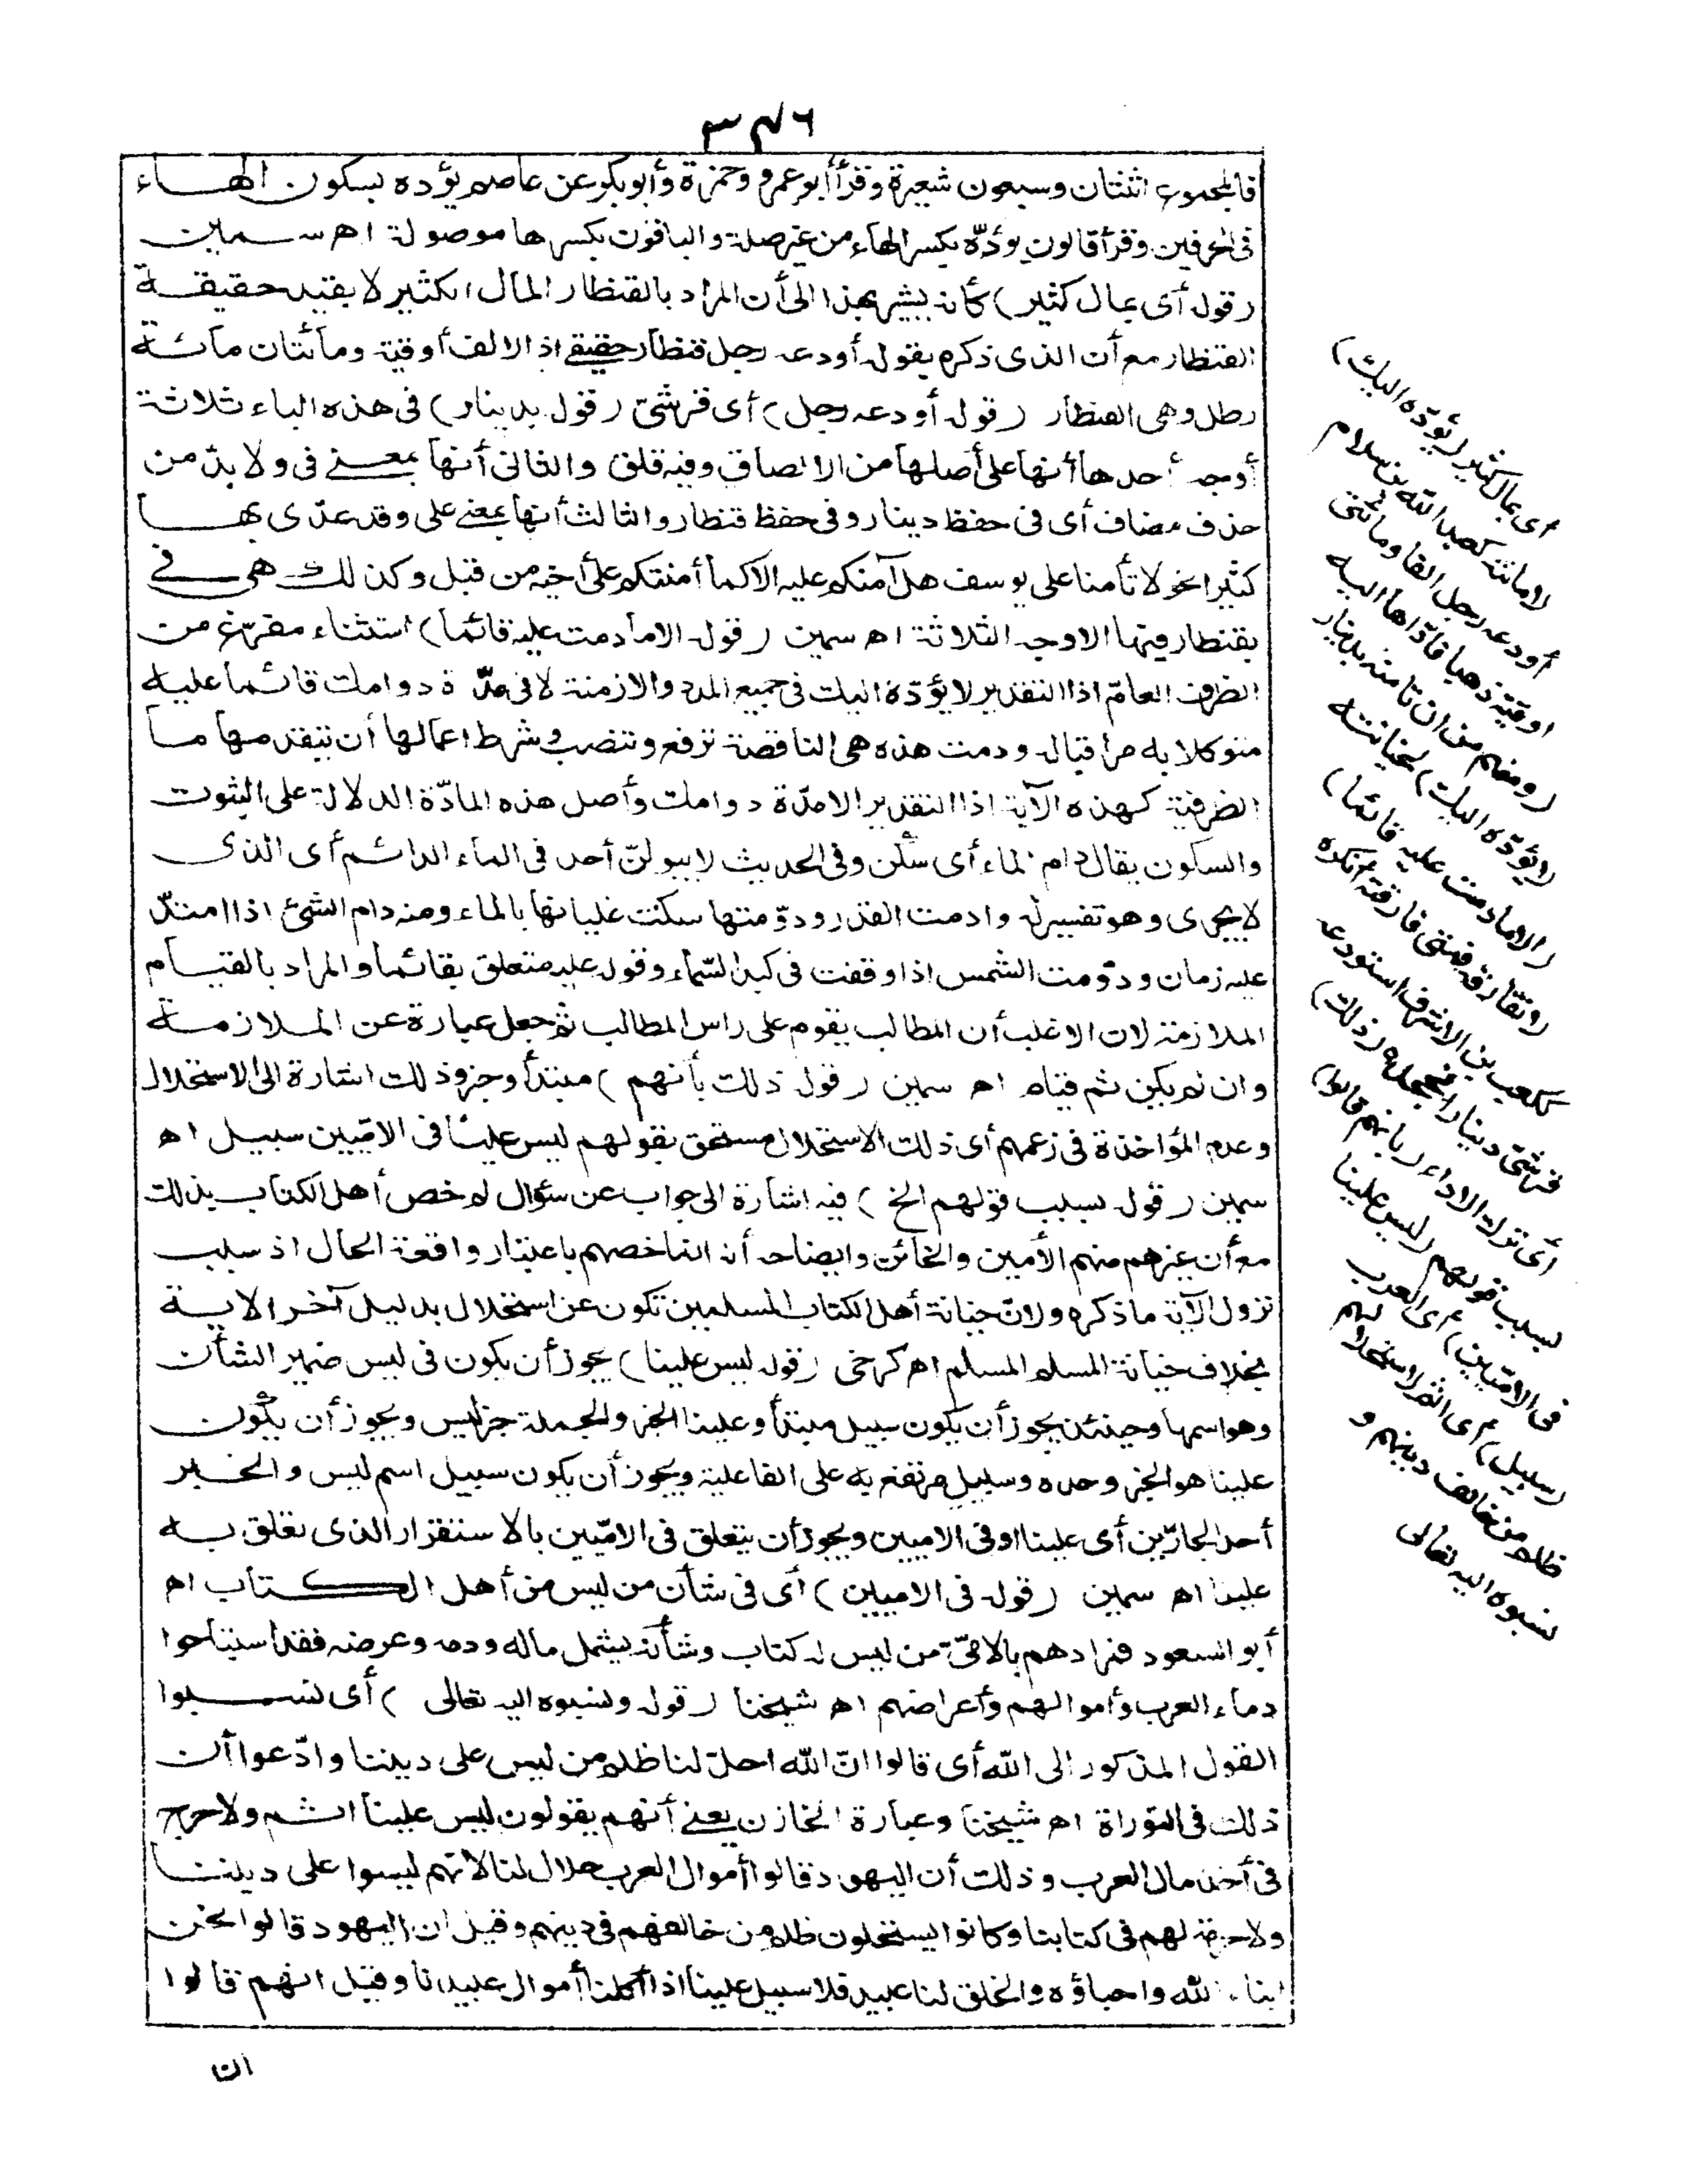 ٣٤٦
فالمجموع اثنتان وسبعون شعيرة وقرأ أبو عمرو وحمزة وأبو بكر عن عاصم يؤده بسكون الهاء
فى الحرفين وقرأ قالون يؤدّه بكسر الهاء من غير صلة والباقون بكسرها موصولة اه سمين
(قوله أى بمال كثير) كأنه يشير بهذا الى أن المراد بالقنطار المال الكثير لا بقيد حقيقة
القنطار مع أن الذى ذكره بقوله أودعه رجل قنطار حقيقى اذ الالف أوقية ومائتان مائة
رطل وهى القنطار (قوله أودعه رجل) أى قرشىّ (قوله بدينار) فى هذه الباء ثلاثة
أوجه أحدها أنها على أصلها من الالصاق وفيه قلق والثانى أنها بمعنى فى ولا بدّ من
حذف مضاف أى فى حفظ دينار وفى حفظ قنطار والثالث أنها بمعنى على وقد عدّى بها
كثيرا نحو لا تأمنا على يوسف هل آمنكم عليه الا كما أمنتكم على أخيه من قبل وكذلك هى فى
بقنطار فيها الاوجه الثلاثة اه سمين (قوله الا مادمت عليه قائما) استثناء مفرّغ من
الظرف العامّ اذ التقدير لا يؤدّه اليك فى جميع المدد والازمنة الا فى مدّة دوامك قائما عليه
متوكلا به ودمت هذه هى الناقصة ترفع وتنصب وشرط اعمالها أن يتقدمها ما
الظرفية كهذه الآية اذ التقدير الا مدّة دوامك وأصل هذه المادّة الدلالة على الثبوت
والسكون يقال دام الماء أى سكن وفى الحديث لا يبولنّ أحد فى الماء الدائم أى الذى
لا يجرى وهو تفسير له وادمت القدر ودوّمتها سكنت غليانها بالماء ومنه دام الشئ اذا امتدّ
عليه زمان ودوّمت الشمس اذا وقفت فى كبد السّماء وقوله عليه متعلق بقائما والمراد بالقيام
الملازمة لان الاغلب أن المطالب يقوم على راس المطالب ثم جعل عبارة عن الملازمة
وان لم يكن ثم قيام اه سمين (قوله ذلك بأنهم) مبتدأ وخبر وذلك اشارة الى الاستحلال
وعدم المؤاخذة فى زعمهم أى ذلك الاستحلال مستحق بقولهم ليس علينا فى الامّيين سبيل اه
سمين (قوله بسبب قولهم الخ) فيه اشارة الى جواب عن سؤال لم خص أهل الكتاب بذلك
مع أن غيرهم منهم الأمين والخائن وايضاحه أن انما خصهم باعتبار واقعة الحال اذ سبب
نزول الآية ما ذكره ولانّ خيانة أهل الكتاب المسلمين تكون عن استحلال بدليل آخر الاية
بخلاف خيانة المسلم المسلم اه كرخى (قوله ليس علينا) يجوز أن يكون فى ليس ضمير الشأن
وهو اسمها وحينئذ يجوز أن يكون سبيل مبتدأ وعلينا الخبر والجملة خبر ليس ويجوز أن يكون
علينا هو الخبر وحده وسبيل مرتفع به على الفاعلية ويجوز أن يكون سبيل اسم ليس والخبر
أحد الجارّين أى علينا او فى الاميين ويجوز أن يتعلق فى الامّيين بالاستقرار الذى تعلق به
علينا اه سمين (قوله فى الاميين) أى فى شأن من ليس من أهل الكتاب اه
أبو السعود فمرادهم بالامىّ من ليس له كتاب وشأنه يشمل ماله ودمه وعرضه فقد استباحوا
دماء العرب وأموالهم وأعراضهم اه شيخنا (قوله ونسبوه اليه تعالى) أى نسبوا
القول المذكور الى الله أى قالوا انّ الله احلّ لنا ظلم من ليس على ديننا وادّعوا أن
ذلك فى التوراة اه شيخنا وعبارة الخازن يعنى أنهم يقولون ليس علينا اثم ولا حرج
فى أخذ مال العرب وذلك أن اليهود قالوا أموال العرب حلال لنا لانهم ليسوا على ديننا
ولا حرمة لهم فى كتابنا وكانوا يستحلون ظلم من خالفهم فى دينهم وقيل ان اليهود قالوا نحن
ابناء الله واحباؤه والخلق لنا عبيد فلا سبيل علينا اذا أكلنا أموال عبيدنا وقيل انهم قالوا
ان
أى بمال كثير (يؤدّه اليك)
لامانته كعبد الله بن سلام
أودعه رجل الفا ومائتى
اوقية ذهبا فأدّاها اليه
(ومنهم من ان تأمنه بدينار
لا يؤدّه اليك) لخيانته
(الا مادمت عليه قائما)
لا تفارقه فمتى فارقته أنكره
ككعب بن الاشرف استودعه
قرشىّ دينارا فجحده (ذلك)
أى ترك الاداء (بأنهم قالوا)
بسبب قولهم (ليس علينا
فى الامّيين) أى العرب
(سبيل) أى اثم لاستحلالهم
ظلم من خالف دينهم و
نسبوه اليه تعالى